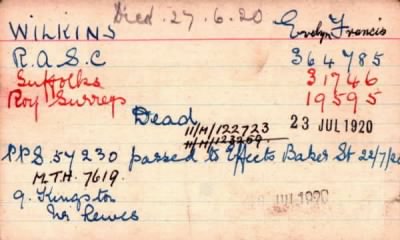 Died. 27.6.20
WILKINS Evelyn Francis
R.A.S.C 364785
Suffolks 31746
Roy Surreys 19595
Dead
11/M/122723 23 JUL 1920
11/M/123259
P.P.S. 57230 passed to Effects Baker St 22/7/20
M.T.H. 7619.
9. Kingston
Nr Lewes JUL 1920